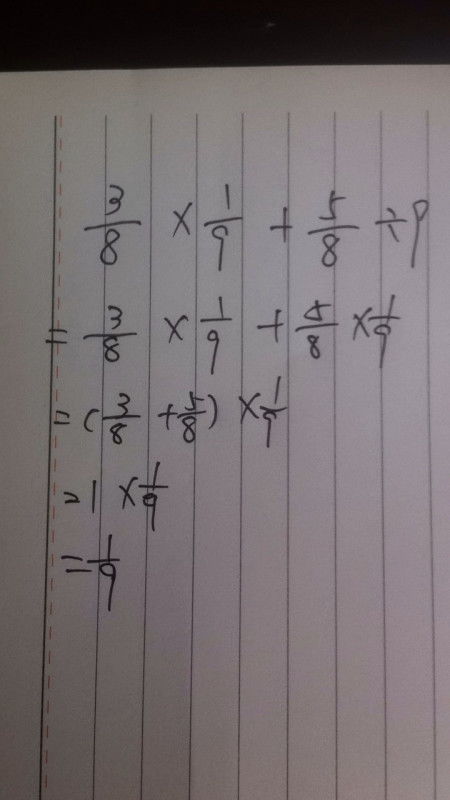 3/8 × 1/9 + 5/8 ÷ 9
= 3/8 × 1/9 + 5/8 × 1/9
= (3/8 + 5/8) × 1/9
= 1 × 1/9
= 1/9